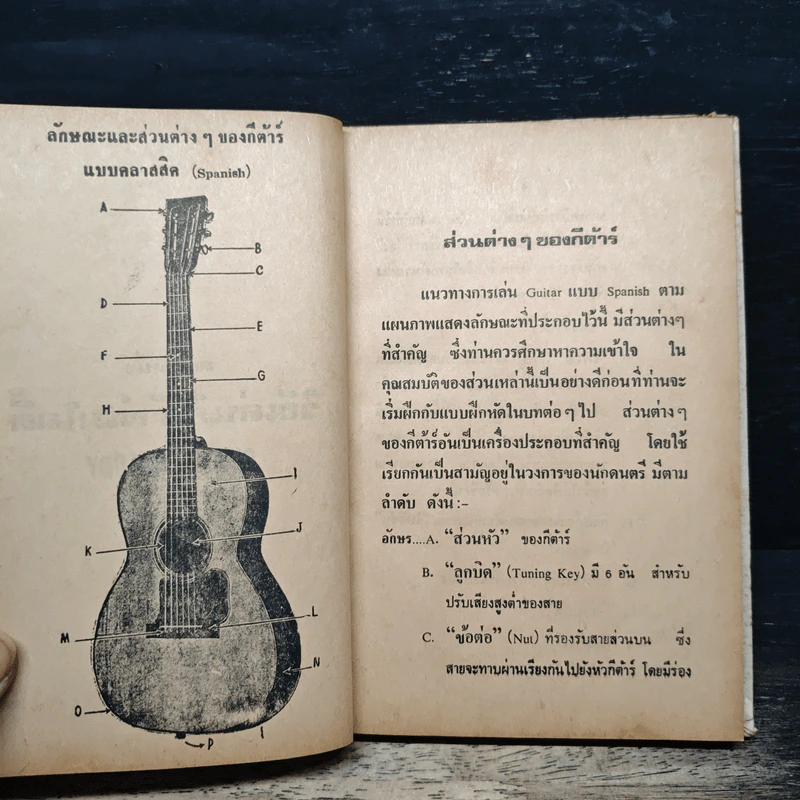 ลักษณะและส่วนต่าง ๆ ของกีต้าร์
แบบคลาสสิค (Spanish)
A
B
C
D
E
F
G
H
I
J
K
L
M
N
O
P
ส่วนต่าง ๆ ของกีต้าร์
แนวทางการเล่น Guitar แบบ Spanish ตาม
แผนภาพแสดงลักษณะที่ประกอบไว้นี้ มีส่วนต่างๆ
ที่สำคัญ ซึ่งท่านควรศึกษาหาความเข้าใจ ใน
คุณสมบัติของส่วนเหล่านี้เป็นอย่างดีก่อนที่ท่านจะ
เริ่มฝึกกับแบบฝึกหัดในบทต่อ ๆ ไป ส่วนต่าง ๆ
ของกีต้าร์อันเป็นเครื่องประกอบที่สำคัญ โดยใช้
เรียกกันเป็นสามัญอยู่ในวงการของนักดนตรี มีตาม
ลำดับ ดังนี้ :-
อักษร....A. “ส่วนหัว” ของกีต้าร์
B. “ลูกบิด” (Tuning Key) มี 6 อัน สำหรับ
ปรับเสียงสูงต่ำของสาย
C. “ข้อต่อ” (Nut) ที่รองรับสายส่วนบน ซึ่ง
สายจะทาบผ่านเรียงกันไปยังหัวกีต้าร์ โดยมีร่อง